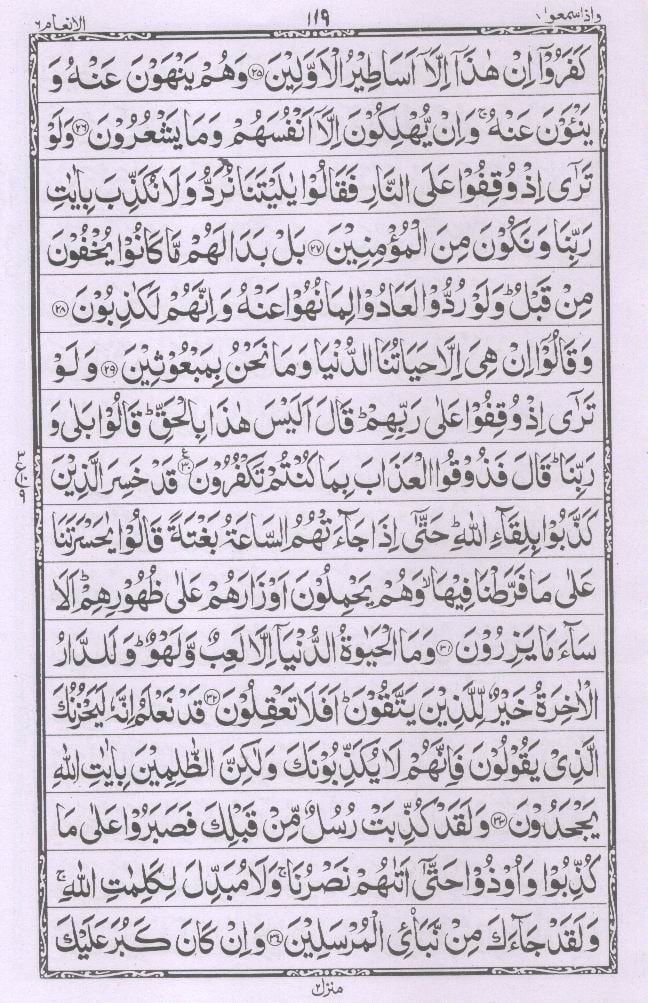 واذا سمعوا ۷ ۱۱۹ الانعام ۶
كَفَرُوْۤا اِنْ هٰذَاۤ اِلَّاۤ اَسَاطِیْرُ الْاَوَّلِیْنَ ﴿۲۵﴾ وَهُمْ یَنْهَوْنَ عَنْهُ وَ
یَنْـَٔوْنَ عَنْهُ ۚ وَاِنْ یُّهْلِكُوْنَ اِلَّاۤ اَنْفُسَهُمْ وَمَا یَشْعُرُوْنَ ﴿۲۶﴾ وَلَوْ
تَرٰۤی اِذْ وُقِفُوْا عَلَی النَّارِ فَقَالُوْا یٰلَیْتَنَا نُرَدُّ وَلَا نُكَذِّبَ بِاٰیٰتِ
رَبِّنَا وَنَكُوْنَ مِنَ الْمُؤْمِنِیْنَ ﴿۲۷﴾ بَلْ بَدَا لَهُمْ مَّا كَانُوْا یُخْفُوْنَ
مِنْ قَبْلُ ؕ وَلَوْ رُدُّوْا لَعَادُوْا لِمَا نُهُوْا عَنْهُ وَاِنَّهُمْ لَكٰذِبُوْنَ ﴿۲۸﴾
وَقَالُوْۤا اِنْ هِیَ اِلَّا حَیَاتُنَا الدُّنْیَا وَمَا نَحْنُ بِمَبْعُوْثِیْنَ ﴿۲۹﴾ وَلَوْ
تَرٰۤی اِذْ وُقِفُوْا عَلٰی رَبِّهِمْ ؕ قَالَ اَلَیْسَ هٰذَا بِالْحَقِّ ؕ قَالُوْا بَلٰی وَ
رَبِّنَا ؕ قَالَ فَذُوْقُوا الْعَذَابَ بِمَا كُنْتُمْ تَكْفُرُوْنَ ﴿۳۰﴾ ع قَدْ خَسِرَ الَّذِیْنَ
كَذَّبُوْا بِلِقَآءِ اللّٰهِ ؕ حَتّٰۤی اِذَا جَآءَتْهُمُ السَّاعَةُ بَغْتَةً قَالُوْا یٰحَسْرَتَنَا
عَلٰی مَا فَرَّطْنَا فِیْهَا ۙ وَهُمْ یَحْمِلُوْنَ اَوْزَارَهُمْ عَلٰی ظُهُوْرِهِمْ ؕ اَلَا
سَآءَ مَا یَزِرُوْنَ ﴿۳۱﴾ وَمَا الْحَیٰوةُ الدُّنْیَاۤ اِلَّا لَعِبٌ وَّلَهْوٌ ؕ وَلَلدَّارُ
الْاٰخِرَةُ خَیْرٌ لِّلَّذِیْنَ یَتَّقُوْنَ ؕ اَفَلَا تَعْقِلُوْنَ ﴿۳۲﴾ قَدْ نَعْلَمُ اِنَّهٗ لَیَحْزُنُكَ
الَّذِیْ یَقُوْلُوْنَ فَاِنَّهُمْ لَا یُكَذِّبُوْنَكَ وَلٰكِنَّ الظّٰلِمِیْنَ بِاٰیٰتِ اللّٰهِ
یَجْحَدُوْنَ ﴿۳۳﴾ وَلَقَدْ كُذِّبَتْ رُسُلٌ مِّنْ قَبْلِكَ فَصَبَرُوْا عَلٰی مَا
كُذِّبُوْا وَاُوْذُوْا حَتّٰۤی اَتٰىهُمْ نَصْرُنَا ۚ وَلَا مُبَدِّلَ لِكَلِمٰتِ اللّٰهِ ۚ
وَلَقَدْ جَآءَكَ مِنْ نَّبَاِی الْمُرْسَلِیْنَ ﴿۳۴﴾ وَاِنْ كَانَ كَبُرَ عَلَیْكَ
منزل ۲